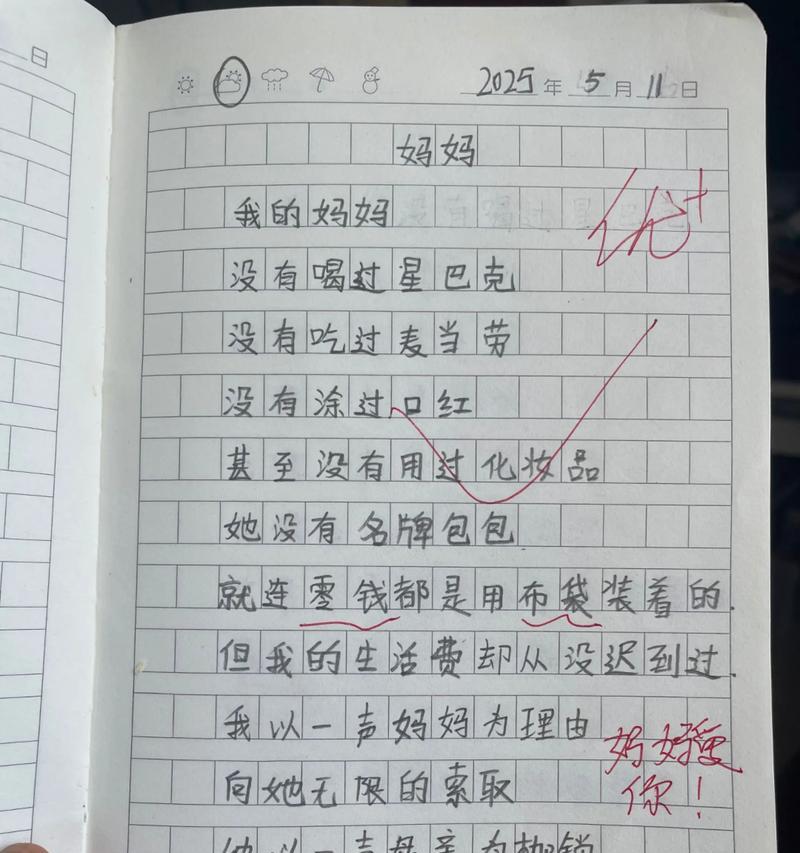 日
2025年5月11日
妈妈
优+
我的妈妈
没有喝过星巴克
没有吃过麦当劳
没有涂过口红
甚至没有用过化妆品
她没有名牌包包
就连零钱都是用布袋装着的.
但我的生活费却从没迟到过.
我以一声妈妈为理由
向她无限的索取
妈妈爱
你！
她以一声母亲为枷锁